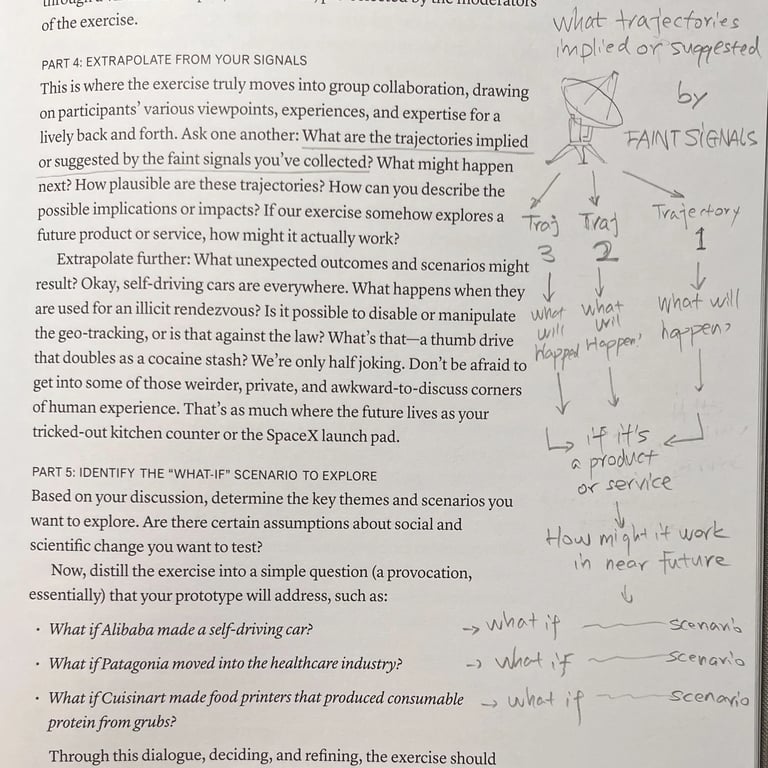 of the exercise.
PART 4: EXTRAPOLATE FROM YOUR SIGNALS
This is where the exercise truly moves into group collaboration, drawing
on participants' various viewpoints, experiences, and expertise for a
lively back and forth. Ask one another: What are the trajectories implied
or suggested by the faint signals you've collected? What might happen
next? How plausible are these trajectories? How can you describe the
possible implications or impacts? If our exercise somehow explores a
future product or service, how might it actually work?
Extrapolate further: What unexpected outcomes and scenarios might
result? Okay, self-driving cars are everywhere. What happens when they
are used for an illicit rendezvous? Is it possible to disable or manipulate
the geo-tracking, or is that against the law? What's that—a thumb drive
that doubles as a cocaine stash? We're only half joking. Don't be afraid to
get into some of those weirder, private, and awkward-to-discuss corners
of human experience. That's as much where the future lives as your
tricked-out kitchen counter or the SpaceX launch pad.
PART 5: IDENTIFY THE "WHAT-IF" SCENARIO TO EXPLORE
Based on your discussion, determine the key themes and scenarios you
want to explore. Are there certain assumptions about social and
scientific change you want to test?
Now, distill the exercise into a simple question (a provocation,
essentially) that your prototype will address, such as:
· What if Alibaba made a self-driving car?
· What if Patagonia moved into the healthcare industry?
· What if Cuisinart made food printers that produced consumable
protein from grubs?
Through this dialogue, deciding, and refining, the exercise should
what trajectories
implied or suggested
by
FAINT SIGNALS
Traj
3
Traj
2
Trajectory
1
what
will
Happen
what
will
Happen?
what will
happen?
if it's
a product
or service
How might it work
in near future
→ what if scenario
→ what if scenario
→ what if scenario